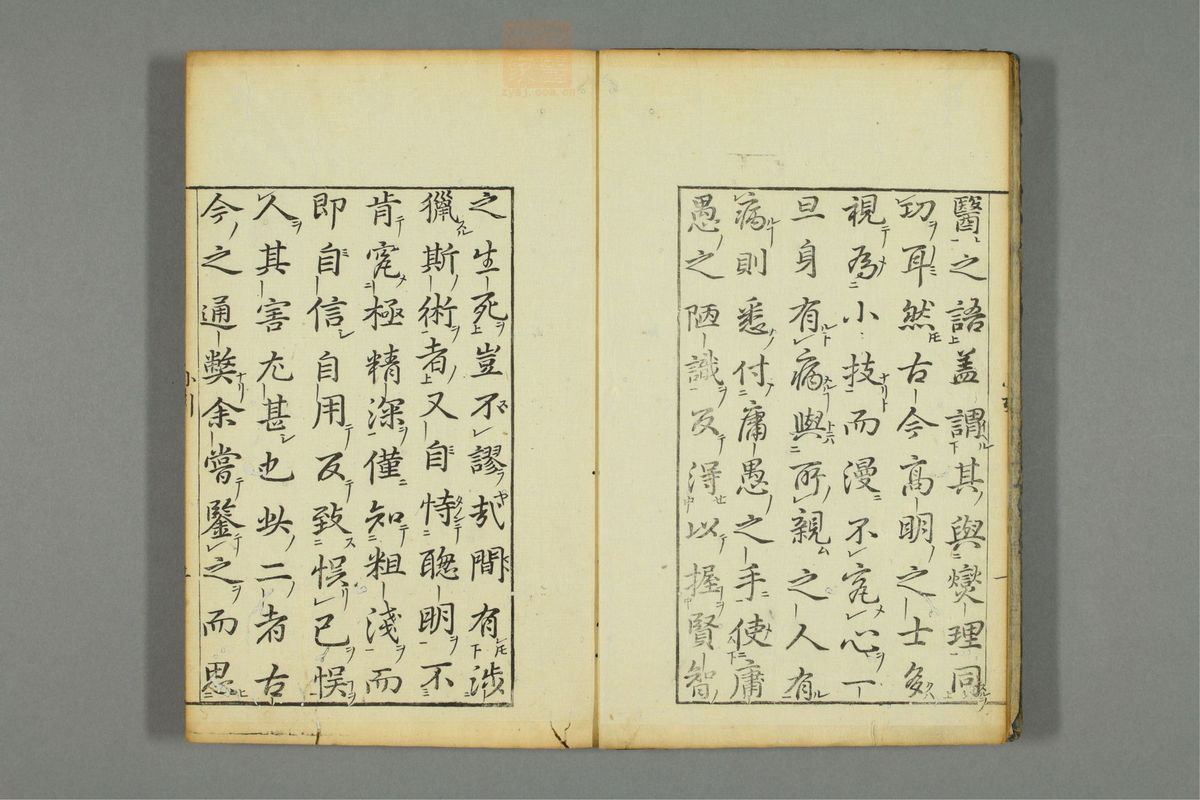 醫之語蓋謂其與燮理同
功耳然古今高明之士多
視為小技而漫不究心一
旦身有病與所親之人有
病則悉付庸愚之手使庸
愚之陋識反得以握賢智
之生死豈不謬哉間有涉
獵斯術者又自恃聰明不
肯究極精深僅知粗淺而
即自信自用反致悞己悞
人其害尤甚也此二者古
今之通獘余嘗鑒之而思